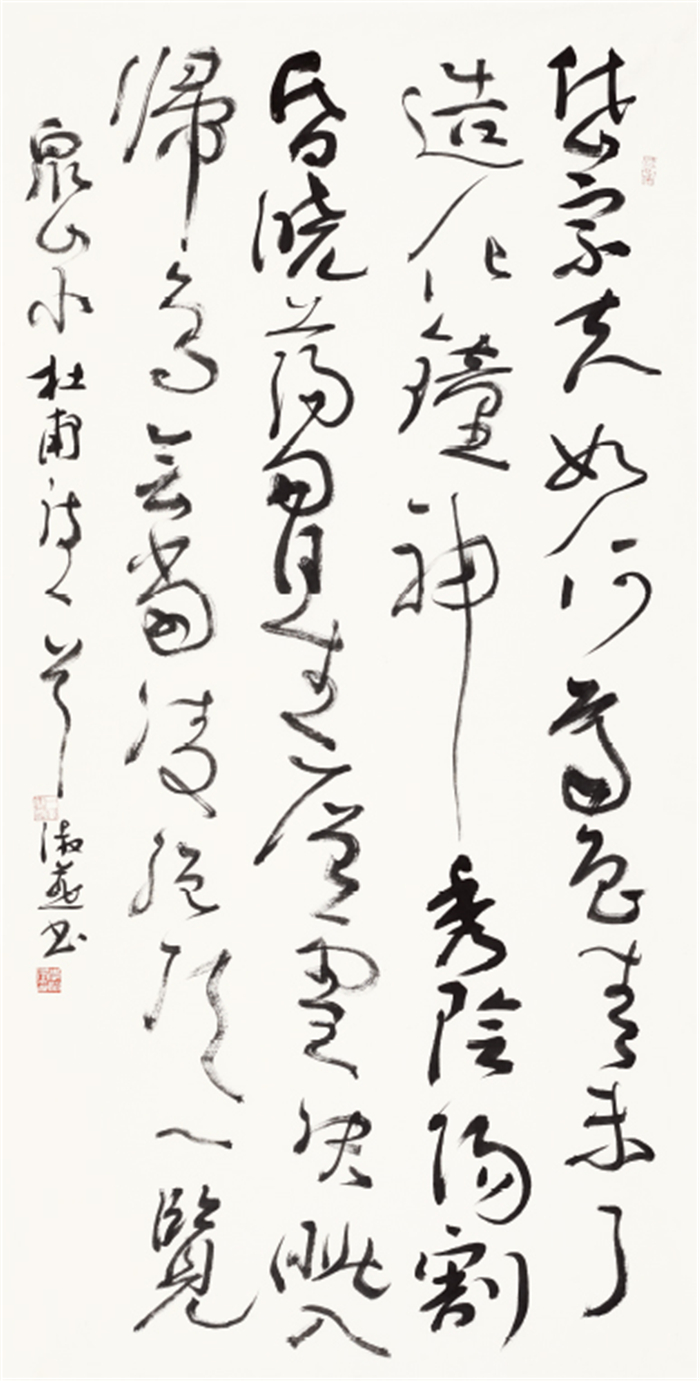 岱宗夫如何齊魯青未了
造化鐘神秀陰陽割
昏曉蕩胷生層雲決眦入
歸鳥會當凌絕頂一覽
眾山小杜甫詩一首淑書